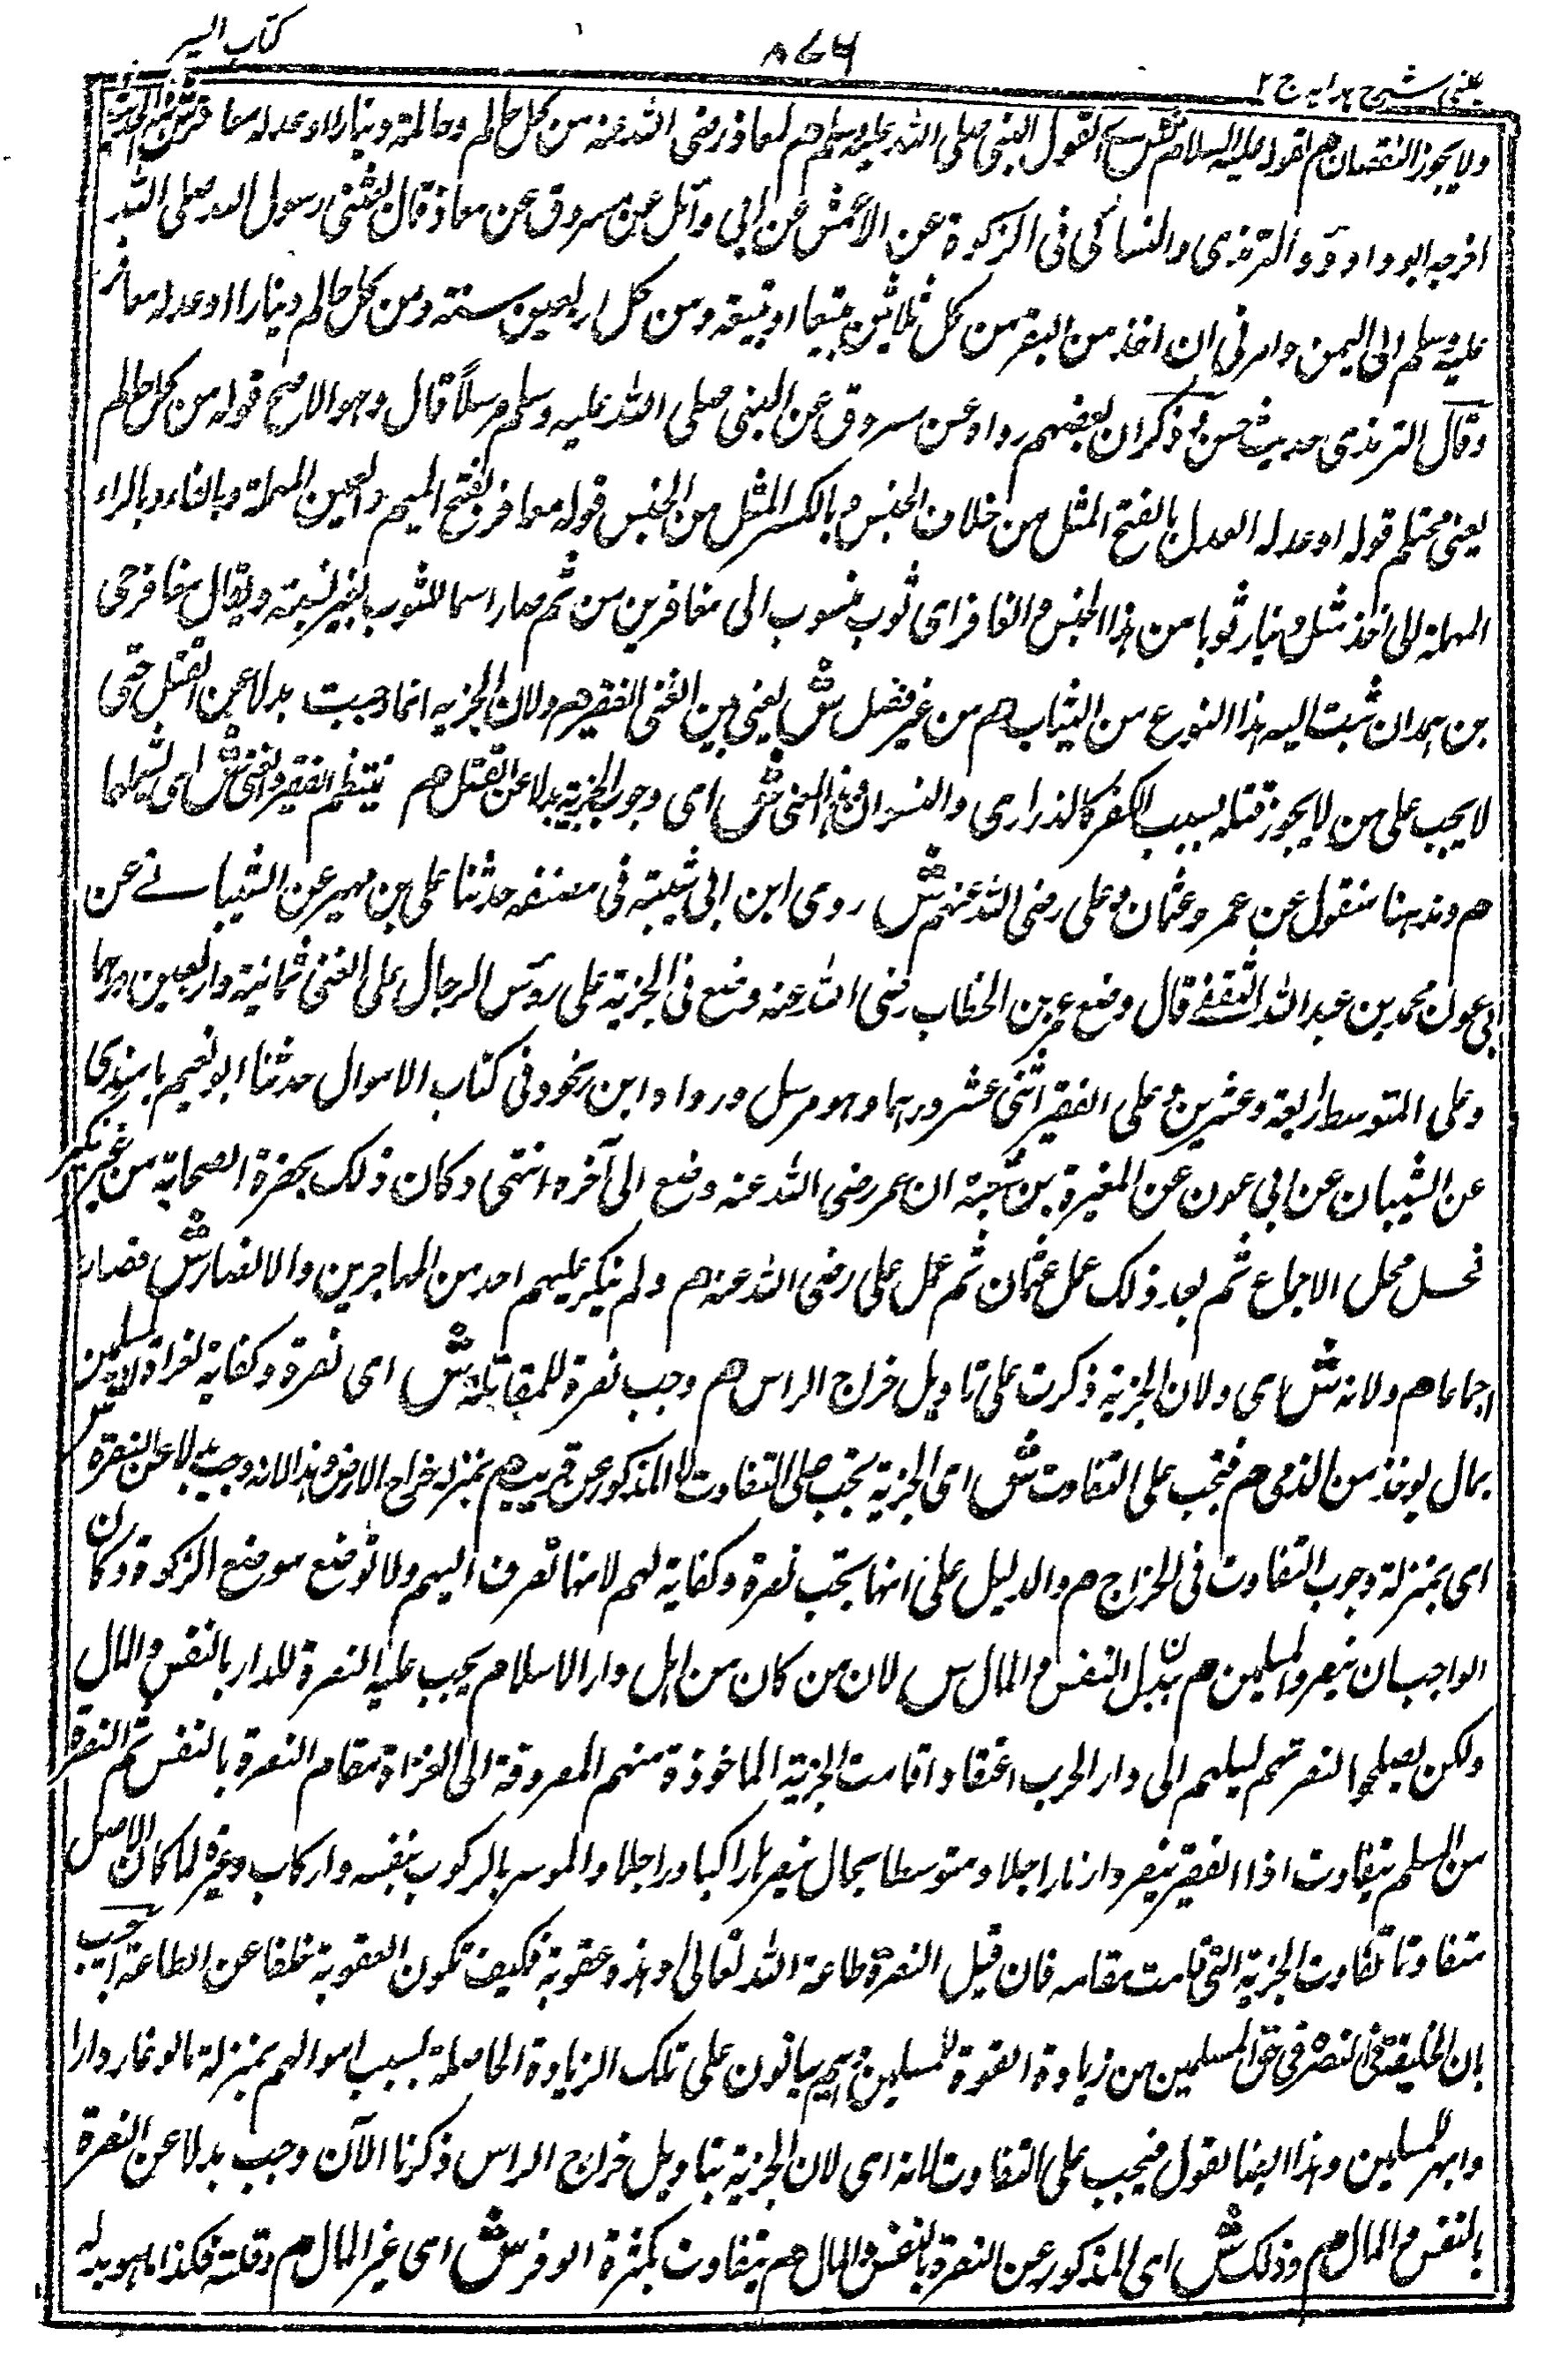 کتاب السیر
۸۷۶
عینی شرح ہدایہ ج ۲
ولا یجوز النقصان م لقولہ علیہ السلام ش ای لقول النبی صلی اللہ علیہ وسلم م لمعاذ رضی اللہ عنہ من کل حالم وحالمۃ دینارا او عدلہ معافر ش ہذا الحدیث
اخرجہ ابو داود والترمذی والنسائی فی الزکوۃ عن الاعمش عن ابی وائل عن مسروق عن معاذ قال بعثنی رسول اللہ صلی اللہ
علیہ وسلم الی الیمن وامرنی ان اخذ من البقر من کل ثلاثین تبیعا او تبیعۃ ومن کل اربعین مسنۃ ومن کل حالم دینارا او عدلہ معافر
وقال الترمذی حدیث حسن وذکر ان بعضہم رواہ عن مسروق عن النبی صلی اللہ علیہ وسلم مرسلاً قال وہو الاصح قولہ من کل حالم
یعنی محتلم قولہ او عدلہ العدل بالفتح المثل من خلاف الجنس وبالکسر المثل من الجنس قولہ معافر بفتح المیم والعین المہملۃ وبالفاء وبالراء
المہملۃ ای اخذ مثل دینار ثوبا من ہذا الجنس والمعافر ای ثوب منسوب الی معافر بن من ثم صار اسما للثوب بغیر نسبۃ ویقال معافر حی
بن ہمدان نسبت الیہ ہذا النوع من الثیاب م من غیر فضل ش یعنی بین الغنی الفقیر م ولان الجزیہ انما وجبت بدلا عن القتل حتی
لا یجب علی من لا یجوز قتلہ بسبب الکفر کالذراری والنسوان وہذا المعنی ش ای وجوب الجزیۃ بدلا عن القتل م ینتظم الفقیر والغنی ش ای یشملہما
م ومذہبنا منقول عن عمر وعثمان وعلی رضی اللہ عنہم ش روی ابن ابی شیبۃ فی مصنفہ حدثنا علی بن مسہر عن الشیبانی عن
ابی عون محمد بن عبد اللہ الثقفی قال وضع عمر بن الخطاب رضی اللہ عنہ وضع فی الجزیۃ علی رؤس الرجال علی الغنی ثمانیۃ واربعین درہما
وعلی المتوسط اربعۃ وعشرین وعلی الفقیر اثنی عشر درہما وہو مرسل ورواہ ابن زنجویہ فی کتاب الاموال حدثنا ابو نعیم
عن الشیبان عن ابی عون عن المغیرۃ بن شعبۃ ان عمر رضی اللہ عنہ وضع الی آخرہ انتہی وکان ذلک بحضرۃ الصحابۃ من غیر نکیر
فحل محل الاجماع ثم بعد ذلک عمل عثمان ثم عمل علی رضی اللہ عنہ م ولم ینکر علیہم احد من المہاجرین والانصار ش فصار
اجماعا م ولانہ ش ای ولان الجزیۃ ذکرت علی تاویل خراج الراس م وجب نصرۃ للمقاتلۃ ش ای نصرۃ وکفایۃ لغزاۃ المسلمین
بمال یوخذ من الذمی م فتجب علی التفاوت ش ای الجزیۃ تجب علی التفاوت المذکور عن قریب م بمنزلۃ خراج الارض وہذا لانہ وجب بدلا عن النصرۃ
ای بمنزلۃ وجوب التفاوت فی الخراج م والدلیل علی انہا تجب نصرۃ وکفایۃ لہم لانہا تصرف الیہم ولا توضع موضع الزکوۃ وکان
الواجب ان ینصروا المسلمین م ببذل النفس والمال ش لان من کان من اہل دار الاسلام یجب علیہ النصرۃ للدار بالنفس والمال
ولکن لم یصلحوا لنصرتہم لمیلہم الی دار الحرب اعتقادا قامت الجزیۃ الماخوذۃ منہم المصروفۃ الی الغزاۃ مقام النصرۃ بالنفس ثم النصرۃ
من المسلم یتفاوت اذا الفقیر ینصر دارنا راجلا ومتوسط الحال ینصرہا راکبا وراجلا والموسر بالرکوب بنفسہ وارکاب وغیرہ لما کان الاصل
متفاوتا تفاوت الجزیۃ التی قامت مقامہ فان قیل النصرۃ طاعۃ اللہ تعالی وہذہ عقوبۃ فکیف تکون العقوبۃ خلفا عن الطاعۃ اجیب
بان الخلیفۃ عن النصر فی حق المسلمین من زیادۃ القوۃ للمسلمین وہم یثابون علی تلک الزیادۃ الحاصلۃ بسبب اموالہم بمنزلۃ ما لو اعاروا
دوابہم للمسلمین وہذا ایضا لقول فیجب علی التفاوت لانہ ای لان الجزیۃ بتاویل خراج الراس ذکرنا الآن وجب بدلا عن النصرۃ
بالنفس والمال م وذلک ش ای المذکور عن النصرۃ بالنفس والمال م یتفاوت بکثرۃ الوفر ش ای غیر المال م وقلتہ فکذا ما ہو بدلہ